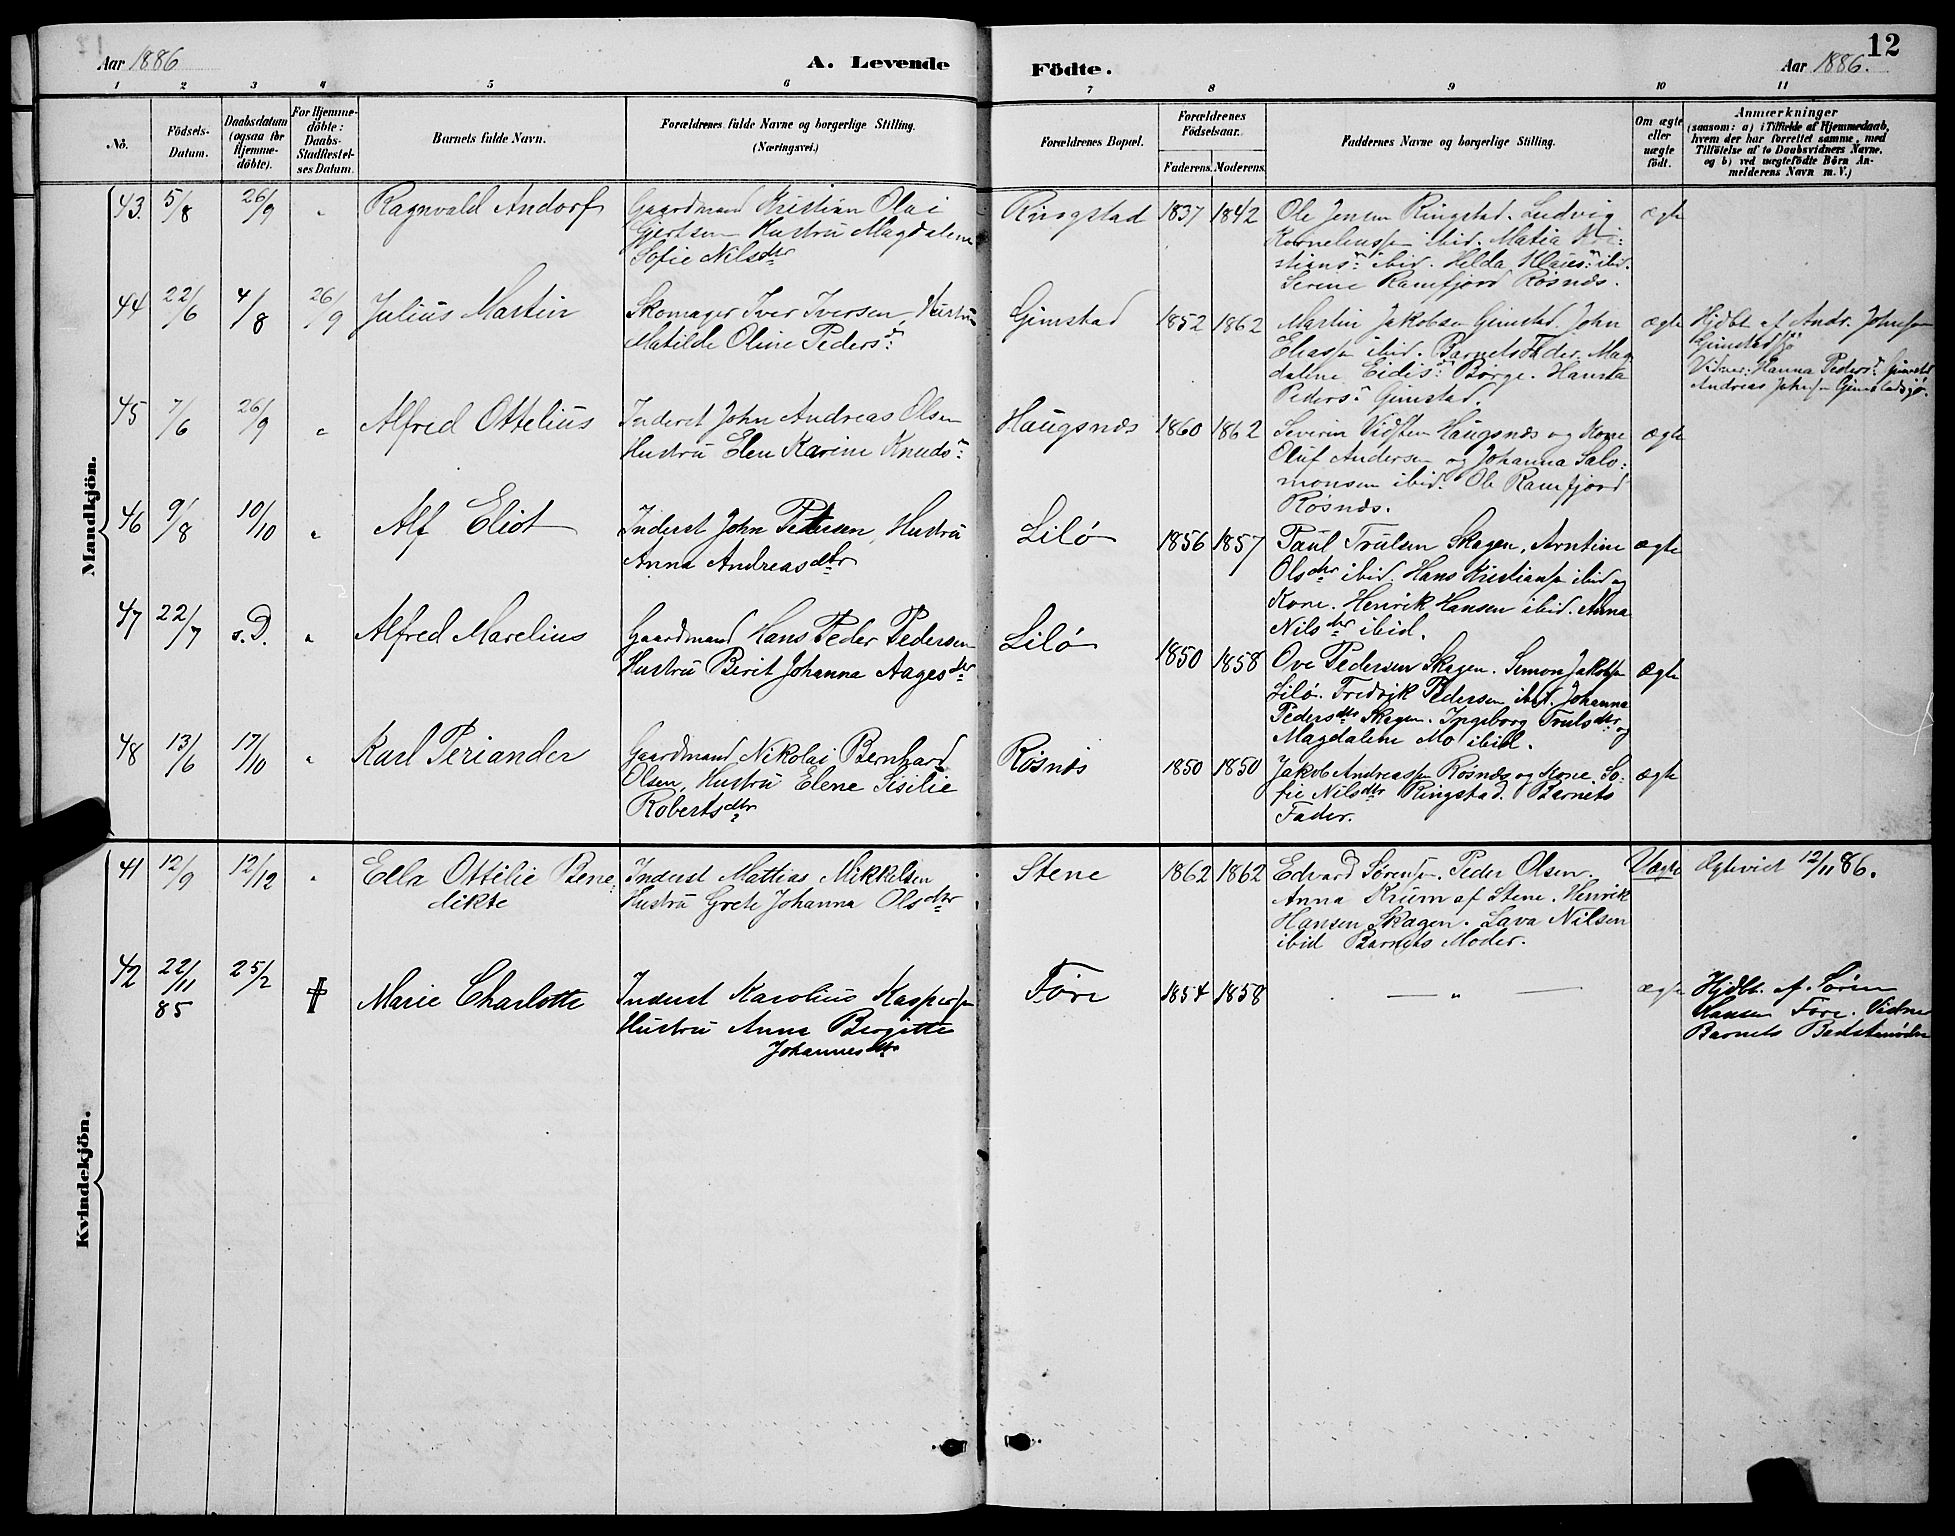 Aar 1886
A. Levende
Födte.
Aar 1886.
12
1 2 3 4 5 6 7 8 9 10 11
No.
Födsels-
Datum.
Daabsdatum
(ogsaa for
Hjemme-
döbte).
For Hjemme-
döbte:
Daabs-
Stadfæstel-
ses Datum.
Barnets fulde Navn.
Forældrenes fulde Navne og borgerlige Stilling.
(Næringsvei.)
Forældrenes Bopæl.
Forældrenes
Födselsaar.
Faderens. Moderens.
Faddernes Navne og borgerlige Stilling.
Om ægte
eller
uægte
födt.
Anmærkninger
(saasom: a) i Tilfælde af Hjemmedaab,
hvem der har forrettet samme, med
Tilföielse af to Daabsvidners Navne,
og b) ved uægtefödte Börn An-
melderens Navn m. V.)
Mandkjön.
43 5/8 26/9 " Ragnvald Andorf
Gaardmand Kristian Olai
Gjertsen Hustru Magdalena
Sofie Nilsdtr
Ringstad 1837 1842
Ole Jensen Ringstad. Ludvig
Korneliussen ibid. Matia Kri-
stiansd. ibid. Hilda Klausd. ibid.
Serine Ramfjord Rösnæs.
ægte
44 22/6 4/8 26/9 Julius Martin
Skomager Iver Iversen, Hustru
Matilde Oline Pedersd.
Gimstad 1852 1862
Martin Jakobsen Gimstad. John
Eliassen ibid. Barnets Fader. Mag
dalene Eidisd. Börge. Hansa
Pedersd. Gimstad.
ægte
Hjdbt af Andr. Johnsen
Gimstadsjö
Vidner: Hanna Pedersd. Gimstad
Andreas Johnsen Gimstadsjö.
45 7/6 26/9 " Alfred Ottelius
Inderst John Andreas Olsen
Hustru Elen Karine Knudsd.
Haugsnæs 1860 1862
Severin Haugsnæs og Kone
Oluf Andersen og Johanna Salo-
monsen ibid. Ole Ramfjord
Rösnæs.
ægte
46 9/8 10/10 " Alf Eliot
Inderst John Petersen, Hustru
Anna Andreasdtr
Lilø 1856 1857
Paul Trulsen Skagen, Arntine
Olsdtr ibid. Hans Kristiansen ibid og
Kone. Henrik Hansen ibid. Anna
Nilsdtr ibid.
ægte
47 22/7 s.D. " Alfred Marelius
Gaardmand Hans Peder Pedersen
Hustru Berit Johanna Aagesdtr
Lilø 1850 1858
Ove Pedersen Skagen. Simon Jakobsen
Lilø. Fredrik Pedersen ibid. Johanna
Pedersdtr Skagen. Ingeborg Trulsdtr og
Magdalene Mo ibid.
ægte
48 13/6 17/10 " Karl Periander
Gaardmand Nikolai Bernhard
Olsen, Hustru Elene Sisilie
Robertsdtr
Røsnæs 1850 1850
Jakob Andreassen Røsnæs og Kone. So-
fie Nilsdtr Ringstad. Barnets
Fader.
ægte
Kvindekjön.
41 12/9 12/12 " Ella Ottilie Bene
dikte
Inderst Mattias Mikkelsen
Hustru Grete Johanna Olsdtr
Stene 1862 1862
Edvard Sørensen. Peder Olsen.
Anna Krum af Stene. Henrik
Hansen Skagen. Lava Nilsen
ibid Barnets Moder.
Uægte
Ægteviet 12/11 86.
42 22/11 85 25/2 † Marie Charlotte
Inderst Karolius Kaspersen
Hustru Anne Birgitte
Johannesdtr
Føre 1854 1858
— " —
ægte
Hjdbt. af Sören
Hansen Føre. Vidne
Barnets Bedstemoder